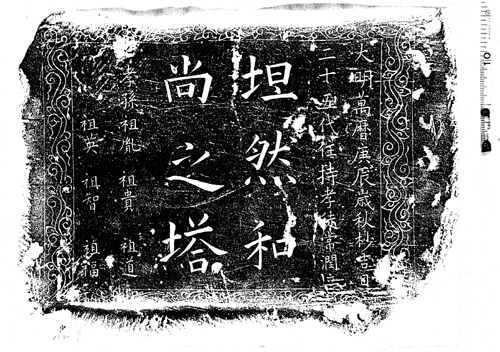 大明萬曆庚辰歲秋杪吉日
二十五代住持孝常潤立
坦然和
尚之塔
孝孫祖胤 祖貴 祖道
祖英 祖智 祖福